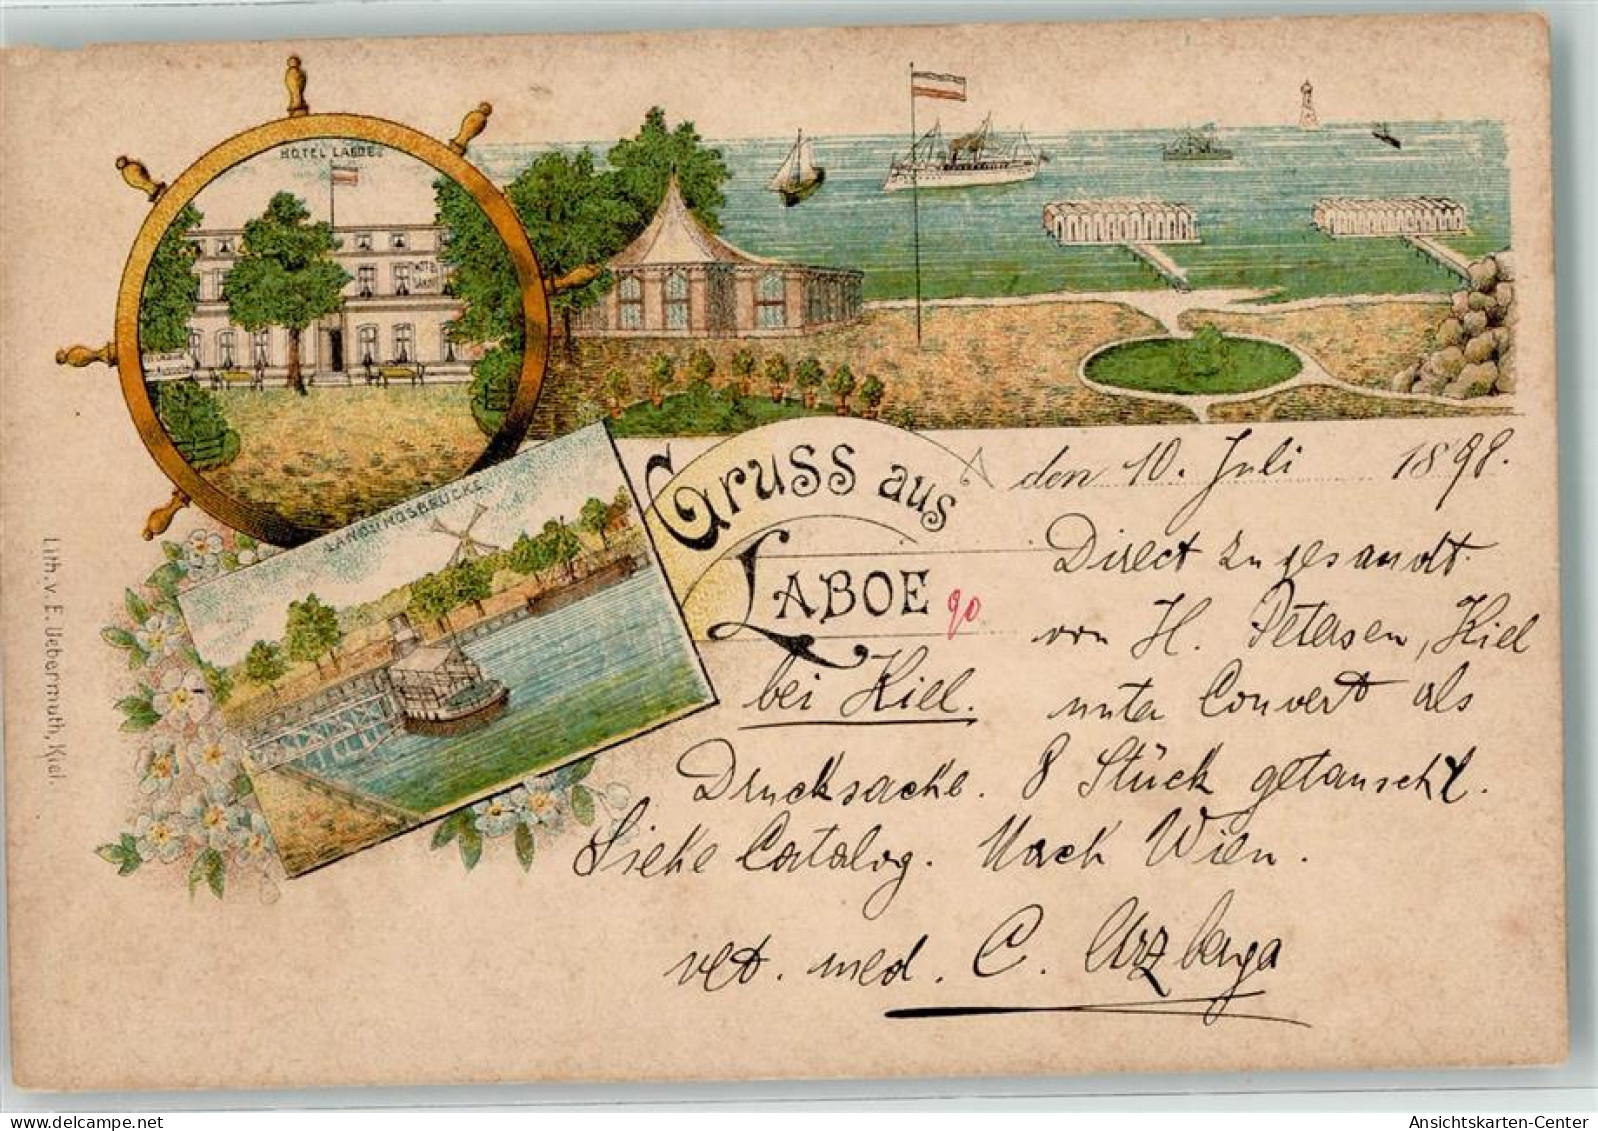 HOTEL LABOE
LANDUNGSBRÜCKE
Gruss aus
LABOE
90
bei Kiel.
den 10. Juli 1898.
Direct zugesandt
von H. Petersen, Kiel
unter Convert als
Drucksache. 8 Stück getauscht.
Siehe Catalog. Nach Wien.
vet. med. C.
Lith. v. E. Uebermuth, Kiel.
Ansichtskarten-Center